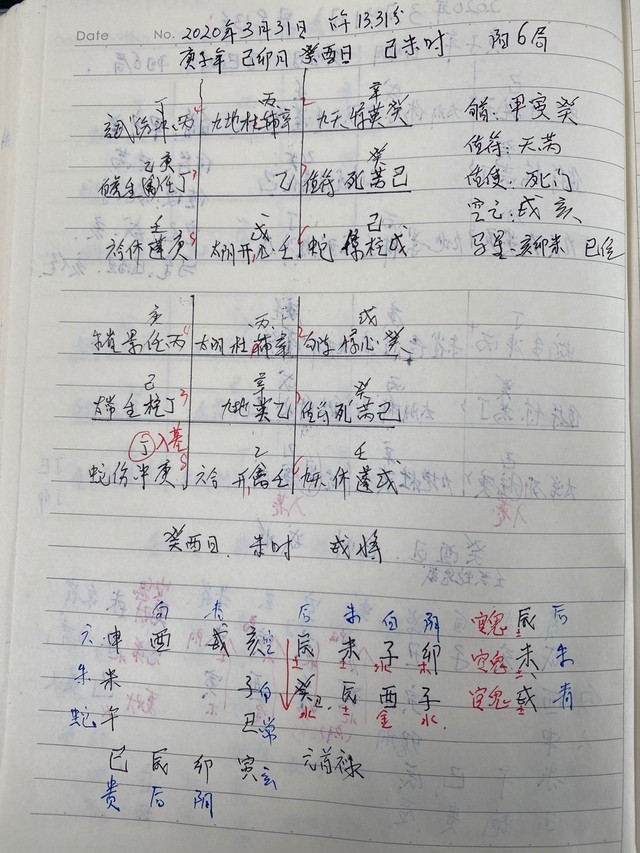 Date No. 2020年3月31日 下午13.31分
庚子年 己卯月 癸酉日 己未时 阴6局
丁 丙 辛
武伤冲丙 九地杜辅辛 九天景英癸 旬首:甲寅癸
己庚 癸 值符:天芮
生任丁 乙 值符 死芮己 值使:死门
壬 戊 己 空亡:戌亥
六合休蓬庚 太阴开心壬 蛇 柱戊 马星:亥卯未 巳位
丙 戊
景任丙 太阴杜辅辛 心癸
己 辛 癸
太常生柱丁 九地英乙 值符死芮己
丁入墓 乙 壬
蛇伤冲庚 六合开禽壬 九天休蓬戊
癸酉日. 未时 戌将
后朱白阴 官鬼辰后
六申酉戌亥 辰未子卯 官鬼未朱
朱未 子白 癸辰酉子 官鬼戌青
蛇午 丑常
巳辰卯寅玄 元首禄
贵后阴